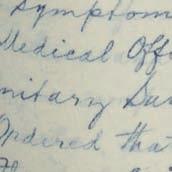 Symptom
Medical Offi
nitary Sur
Ordered that